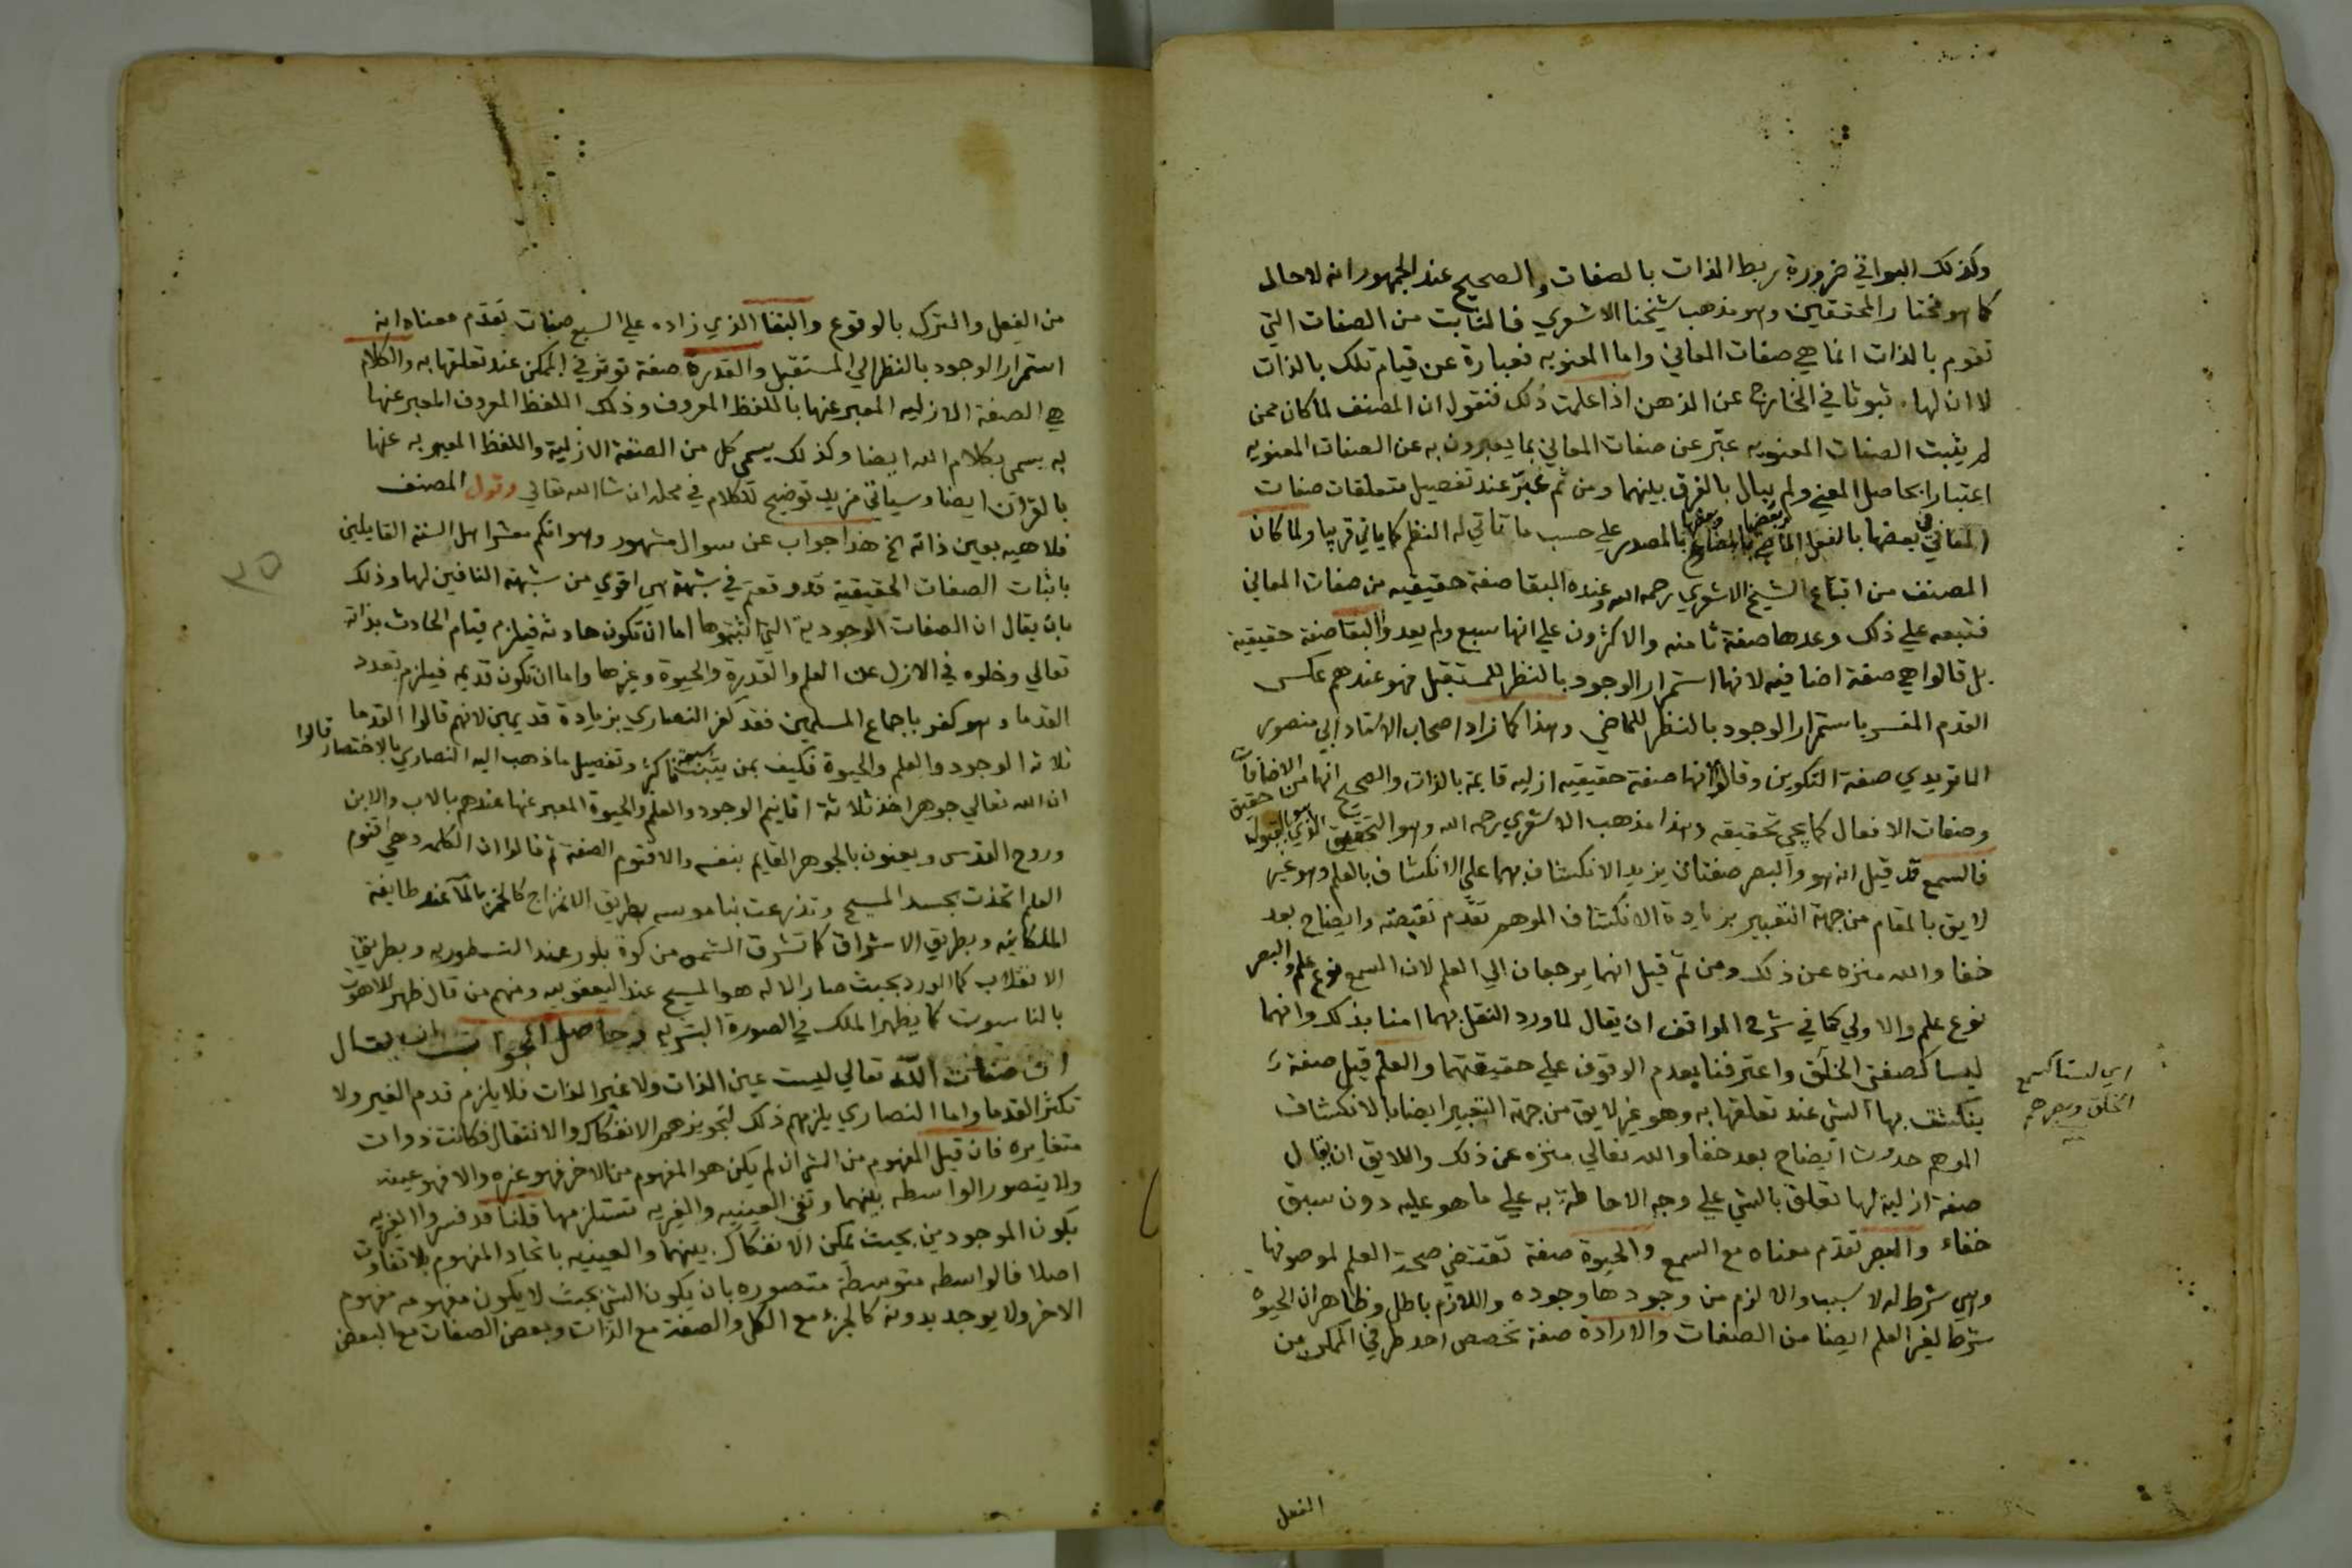 وكذلك البواقي ضرورة ربط الذات بالصفات والصحيح عند الجمهور انه لا حال
كما هو مختار المحققين وهو مذهب شيخنا الاشعري فالثابت من الصفات التي
تقوم بالذات انما هي صفات المعاني واما المعنويه فعبارة عن قيام تلك بالذات
لا ان لها ثبوتا في الخارج عن الذهن اذا علمت ذلك فنقول ان المصنف لما كان ممن
لم يثبت الصفات المعنويه عبّر عن صفات المعاني بما يعبرون به عن الصفات المعنويه
اعتبارا بحاصل المعنى ولم يبال بالفرق بينهما ومن ثم عبّر عند تفصيل متعلقات صفات
المعاني في بعضها بالفعل الماضي وبعضها بالمضارع وبعضها بالمصدر على حسب ما تاتي له النظم كما ياتي قريبا ولما كان
المصنف من اتباع الشيخ الاشعري رحمه الله وعنده البقا صفة حقيقيه من صفات المعاني
فتبعه علي ذلك وعدها صفة ثامنه والاكثرون علي انها سبع ولم يعدوا البقا صفة حقيقية
بل قالوا هي صفة اضافيه لانها استمرار الوجود بالنظر للمستقبل فهو عندهم عكس
القدم المفسر باستمرار الوجود بالنظر للماضي وهذا كما زاد اصحاب الاستاد ابي منصور
الماتريدي صفة التكوين وقالوا انها صفة حقيقيه ازليه قايمة بالذات والصحيح انها من الاضافات
وصفات الافعال كما يجي تحقيقه وهذا مذهب الاشعري رحمه الله وهو التحقيق الذي هو بالقبول حقيق
فالسمع قد قيل انه هو والبصر صفتان يزيد الانكشاف بهما علي الانكشاف بالعلم وهو غير
لايق بالمقام من جهة التعبير بزيادة الانكشاف الموهم تقدّم نقيضه وايضاح بعد
خفا والله منزه عن ذلك ومن ثمّ قيل انهما يرجعان الي العلم لان السمع نوع علم والبصر
نوع علم والاولي كما في شرح المواقف ان يقال لما ورد النقل بهما امنا بذلك وانهما
ليسا كصفتي الخلق واعترفنا بعدم الوقوف علي حقيقتهما والعلم قيل صفة
ينكشف بها الشي عند تعلقها به وهو غير لايق من جهة التعبير ايضا بالانكشاف
الموهم حدوث ايضاح بعد خفا والله تعالي منزه عن ذلك واللايق ان يقال
صفة ازلية لها تعلق بالشي علي وجه الاحاطة به علي ما هو عليه دون سبق
خفاء والبصر تقدّم معناه مع السمع والحيوة صفة تقتضي صحة العلم لموصوفها
وهي شرط له لا سبب والا لزم من وجودها وجوده واللازم باطل وظاهر ان الحيوة
شرط لغير العلم ايضا من الصفات والارادة صفة تخصص احد طرفي الممكن من
اي ليستا كسمع
الخلق وبصرهم
منه
الفعل
من الفعل والترك بالوقوع والبقا الذي زاده علي السبع صفات تقدّم معناه وانه
استمرار الوجود بالنظر الي المستقبل والقدرة صفة توثر في الممكن عند تعلقها به والكلام
هي الصفة الازليه المعبر عنها باللفظ المعروف وذلك اللفظ المعروف المعبر عنها
به يسمي بكلام الله ايضا وكذلك يسمي كل من الصفة الازلية واللفظ المعبر به عنها
بالقران ايضا وسياتي مزيد توضيح للكلام في محله ان شا الله تعالي وقول المصنف
فلا هيه بعين ذاته الخ هذا جواب عن سوال مشهور وهو انكم معشر اهل السنة القايلين
باثبات الصفات الحقيقية قد وقعتم في شبهة هي اقوي من شبهة النافين لها وذلك
بان يقال ان الصفات الوجودية التي اثبتموها اما ان تكون حادثه فيلزم قيام الحادث بذاته
تعالي وخلوه في الازل عن العلم والقدرة والحيوة وغيرها واما ان تكون قديمه فيلزم تعدد
القدما وهو كفر باجماع المسلمين فقد كفر النصاري بزيادة قديمين لانهم قالوا القدما
ثلاثه الوجود والعلم والحيوة فكيف بمن يثبت سبعة فاكثر وتفصيل ما ذهب اليه النصاري بالاختصار قالوا
ان الله تعالي جوهر اخذ ثلاثة اقانيم الوجود والعلم والحيوة المعبر عنها عندهم بالاب والابن
وروح القدس ويعنون بالجوهر القايم بنفسه والاقنوم الصفة ثم قالوا ان الكلمه وهي اقنوم
العلم اتحدت بجسد المسيح وتذرعت بناسوته بطريق الامتزاج كالخمر بالمآ عند طايفة
الملكانيه وبطريق الاشراق كما تشرق الشمس من كوة بلور عند النسطوريه وبطريق
الانقلاب كما الورد بحيث صار الاله هو المسيح عند اليعقوبيه ومنهم من قال ظهر اللاهوت
بالناسوت كما يظهر الملك في الصورة البشريه وحاصل الجواب ان يقال
ان صفات الله تعالي ليست عين الذات ولا غير الذات فلا يلزم قدم الغير ولا
تكثر القدما واما النصاري يلزمهم ذلك لتجويزهم الانفكاك والانتقال فكانت ذوات
متغايره فان قيل المفهوم من الشي ان لم يكن هو المفهوم من الاخر فهو غيره والا فهو عينه
ولا يتصور الواسطه بينهما ونفي العينيه والغيريه تستلزمها قلنا قد فسروا الغيريه
بكون الموجودين بحيث يمكن الانفكاك بينهما والعينيه باتحاد المفهوم بلا تفاوت
اصلا فالواسطه متوسطة متصوره بان يكون الشي بحيث لا يكون مفهومه مفهوم
الاخر ولا يوجد بدونه كالجزء مع الكل والصفة مع الذات وبعض الصفات مع البعض
٣٥